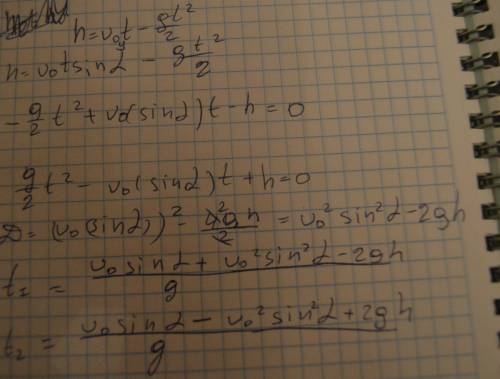 h = v₀ᵧt − gt²/2
h = v₀t sin α − gt²/2
−g/2 t² + v₀(sin α)t − h = 0
g/2 t² − v₀(sin α)t + h = 0
D = (v₀(sin α))² − 4gh/2 = v₀² sin² α − 2gh
t₁ = (v₀ sin α + v₀² sin² α − 2gh)/g
t₂ = (v₀ sin α − v₀² sin² α + 2gh)/g